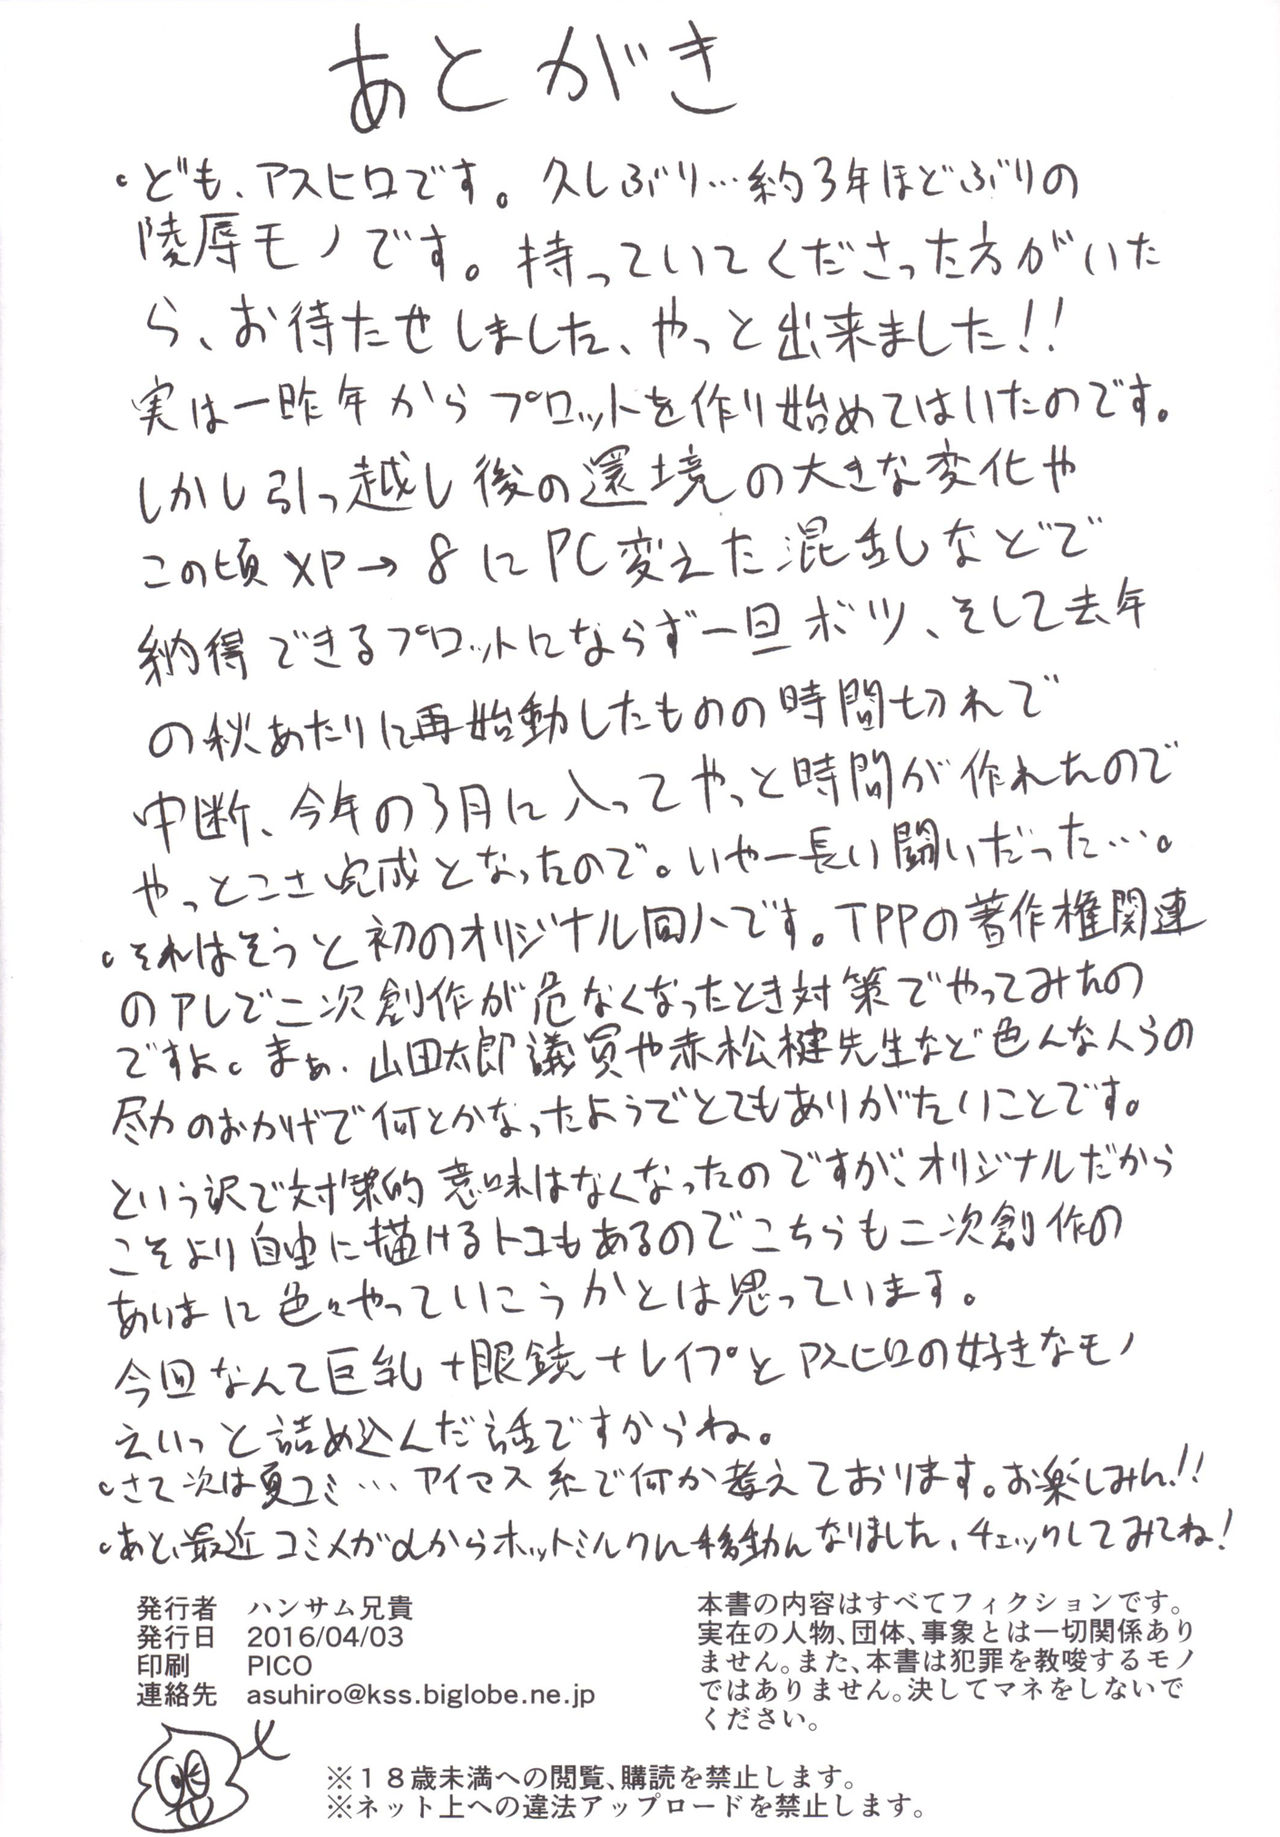 あとがき
・ども、アスヒロです。久しぶり…約3年ほどぶりの
陵辱モノです。持っていてくださった方がいた
ら、お待たせしました、やっと出来ました!!
実は一昨年からプロットを作り始めてはいたのです。
しかし引っ越し後の環境の大きな変化や
この頃XP→8にPC変えた混乱しなどで
納得できるプロットにならず一旦ボツ、そして去年
の秋あたりに再始動したものの時間切れで
中断、今年の3月に入ってやっと時間が作れたので
やっとこさ完成となったので。いやー長い闘いだった…。
・それはそうと初のオリジナル同人です。TPPの著作権関連
のアレで二次創作が危なくなったとき対策でやってみたの
ですよ。まぁ、山田太郎議員や赤松健先生など色んな人らの
尽力のおかげで何とかなったようでとてもありがたいことです。
という訳で対策的意味はなくなったのですが、オリジナルだから
こそより自由に描けるトコもあるのでこちらも二次創作の
あいまに色々やっていこうかとは思っています。
今回なんて巨乳+眼鏡+レイプとアスヒロの好きなモノ
えいっと詰め込んだ話ですからね。
・さて次は夏コミ…アイマス系で何か考えております。お楽しみん!!
・あと、最近コミメガαからホットミルクに移動んなりました、チェックしてみてね!
発行者 ハンサム兄貴
発行日 2016/04/03
印刷 PICO
連絡先 asuhiro@kss.biglobe.ne.jp
本書の内容はすべてフィクションです。
実在の人物、団体、事象とは一切関係あり
ません。また、本書は犯罪を教唆するモノ
ではありません。決してマネをしないで
ください。
※18歳未満への閲覧、購読を禁止します。
※ネット上への違法アップロードを禁止します。